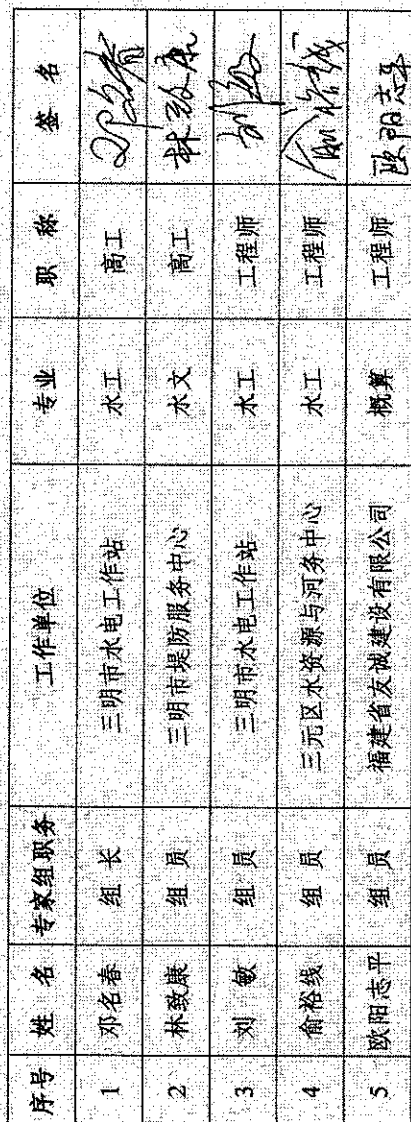 序号 姓 名 专家组职务 工作单位 专业 职 称 签 名
1 邓名春 组 长 三明市水电工作站 水工 高工 邓名春
2 林致康 组 员 三明市堤防服务中心 水文 高工 林致康
3 刘 敏 组 员 三明市水电工作站 水工 工程师 刘敏
4 俞裕线 组 员 三元区水资源与河务中心 水工 工程师 俞裕线
5 欧阳志平 组 员 福建省友诚建设有限公司 概算 工程师 欧阳志平